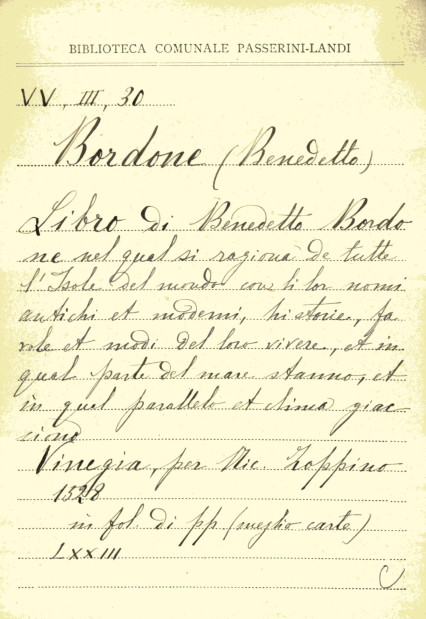 BIBLIOTECA COMUNALE PASSERINI-LANDI
VV, III, 30
Bordone (Benedetto)
Libro di Benedetto Bordo
ne nel qual si ragiona de tutte
l'Isole del mondo con li lor nomi
antichi et moderni, historie, fa
vole et modi del loro vivere, et in
qual parte del mare stanno, et
in qual parallelo et clima giac
ciono
Vinegia, per Nic. Zoppino
1528
in fol. di pp (meglio carte)
LXXIII